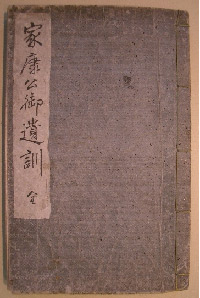 家康公御遺訓 全